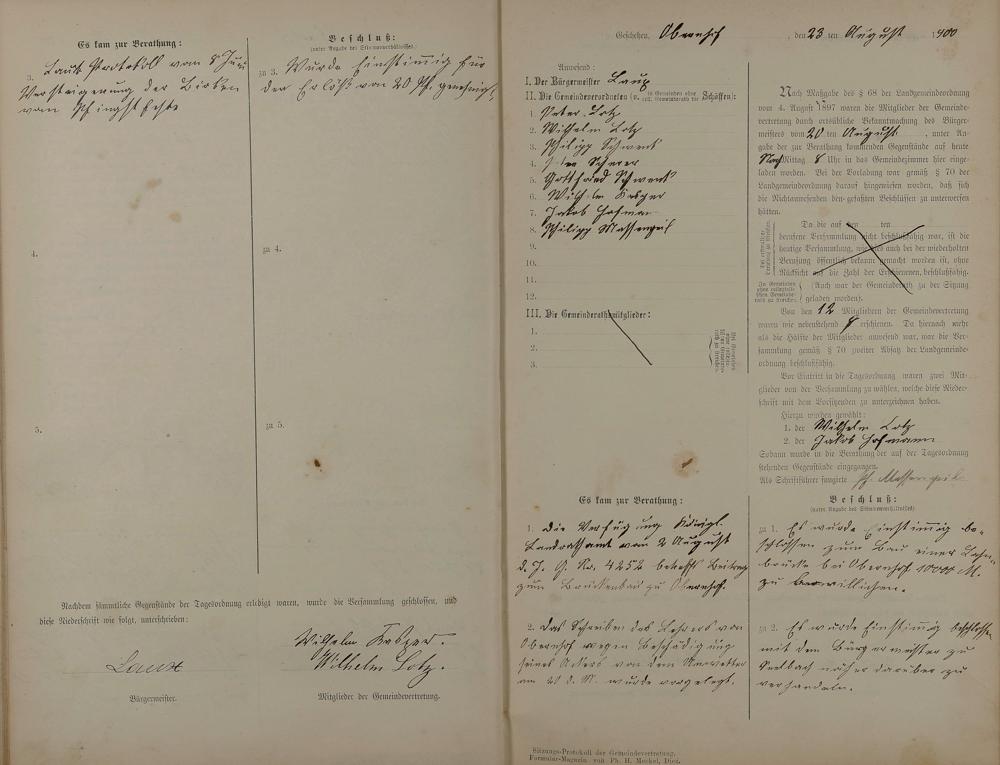 Es kam zur Berathung:
3. Laut Protokoll vom 8 Juni
Versteigerung der Birken
vom
4.
5.
Beschluß:
(unter Angabe des Stimmenverhältnisses).
zu 3. Wurde Einstimmig für
den Erlöß von 20 genehmigt
zu 4.
zu 5.
Nachdem sämmtliche Gegenstände der Tagesordnung erledigt waren, wurde die Versammlung geschlossen, und
diese Niederschrift wie folgt, unterschrieben:
Wilhelm
Wilhelm Lotz.
Laux
Bürgermeister.
Mitglieder der Gemeindevertretung.
Geschehen, Obernhof, den 23 ten August 1900
Anwesend:
I. Der Bürgermeister Laux
II. Die Gemeindeverordneten (v. in Gemeinden ohne coll. Gemeinderath die Schöffen):
1. Peter Lotz
2. Wilhelm Lotz
3. Philipp Schwenk
4. Scherer
5. Gottfried Schwenk
6.
7. Jakob Hofmann
8. Philipp Massengeil
9.
10.
11.
12.
III. Die Gemeinderathsmitglieder:
1.
2.
3.
Nach Maßgabe des § 68 der Landgemeindeordnung
vom 4. August 1897 waren die Mitglieder der Gemeinde-
vertretung durch ortsübliche Bekanntmachung des Bürger-
meisters vom 20 ten August, unter An-
gabe der zur Berathung kommenden Gegenstände auf heute
Nachmittag 8 Uhr in das Gemeindezimmer hier einge-
laden worden. Bei der Vorladung war gemäß § 70 der
Landgemeindeordnung darauf hingewiesen worden, daß sich
die Nichtanwesenden den gefaßten Beschlüssen zu unterwerfen
hätten.
Da die auf den ten
berufene Versammlung nicht beschlußfähig war, ist die
heutige Versammlung, wie dies auch bei der wiederholten
Berufung öffentlich bekannt gemacht worden ist, ohne
Rücksicht auf die Zahl der Erschienenen, beschlußfähig.
(Auch war der Gemeinderath zu der Sitzung
geladen worden).
Von den 12 Mitgliedern der Gemeindevertretung
waren wie nebenstehend 8 erschienen. Da hiernach mehr
als die Hälfte der Mitglieder anwesend war, war die Ver-
sammlung gemäß § 70 zweiter Absatz der Landgemeinde-
ordnung beschlußfähig.
Vor Eintritt in die Tagesordnung waren zwei Mit-
glieder von der Versammlung zu wählen, welche diese Nieder-
schrift mit dem Vorsitzenden zu unterzeichnen haben.
Hierzu wurden gewählt:
1. der Wilhelm Lotz
2. der Jakob Hofmann
Sodann wurde in die Berathung der auf der Tagesordnung
stehenden Gegenstände eingegangen.
Als Schriftführer fungirte Ph. Massengeil
Es kam zur Berathung:
1. Die Verfügung Königl.
Landrathsamt vom 2 August
d. J. G. Nr. 4252 betrefft Beitrag
zum Brückenbau zu Obernhof.
2. Das Schreiben des Lehrers von
Obernhof wegen Beschädigung
seines Ackers von dem Unwetter
am 20 d. M. wurde vorgelegt.
Beschluß:
(unter Angabe des Stimmenverhältnisses)
zu 1. Es wurde Einstimmig be-
schlossen zum Bau einer Lahn-
brücke bei Obernhof 10000 M.
zu
zu 2. Es wurde Einstimmig beschlossen
mit dem Bürgermeister zu
Seelbach näher darüber zu
verhandeln.
Sitzungs-Protokoll der Gemeindevertretung.
Formular-Magazin von Ph. H. Meckel, Diez.